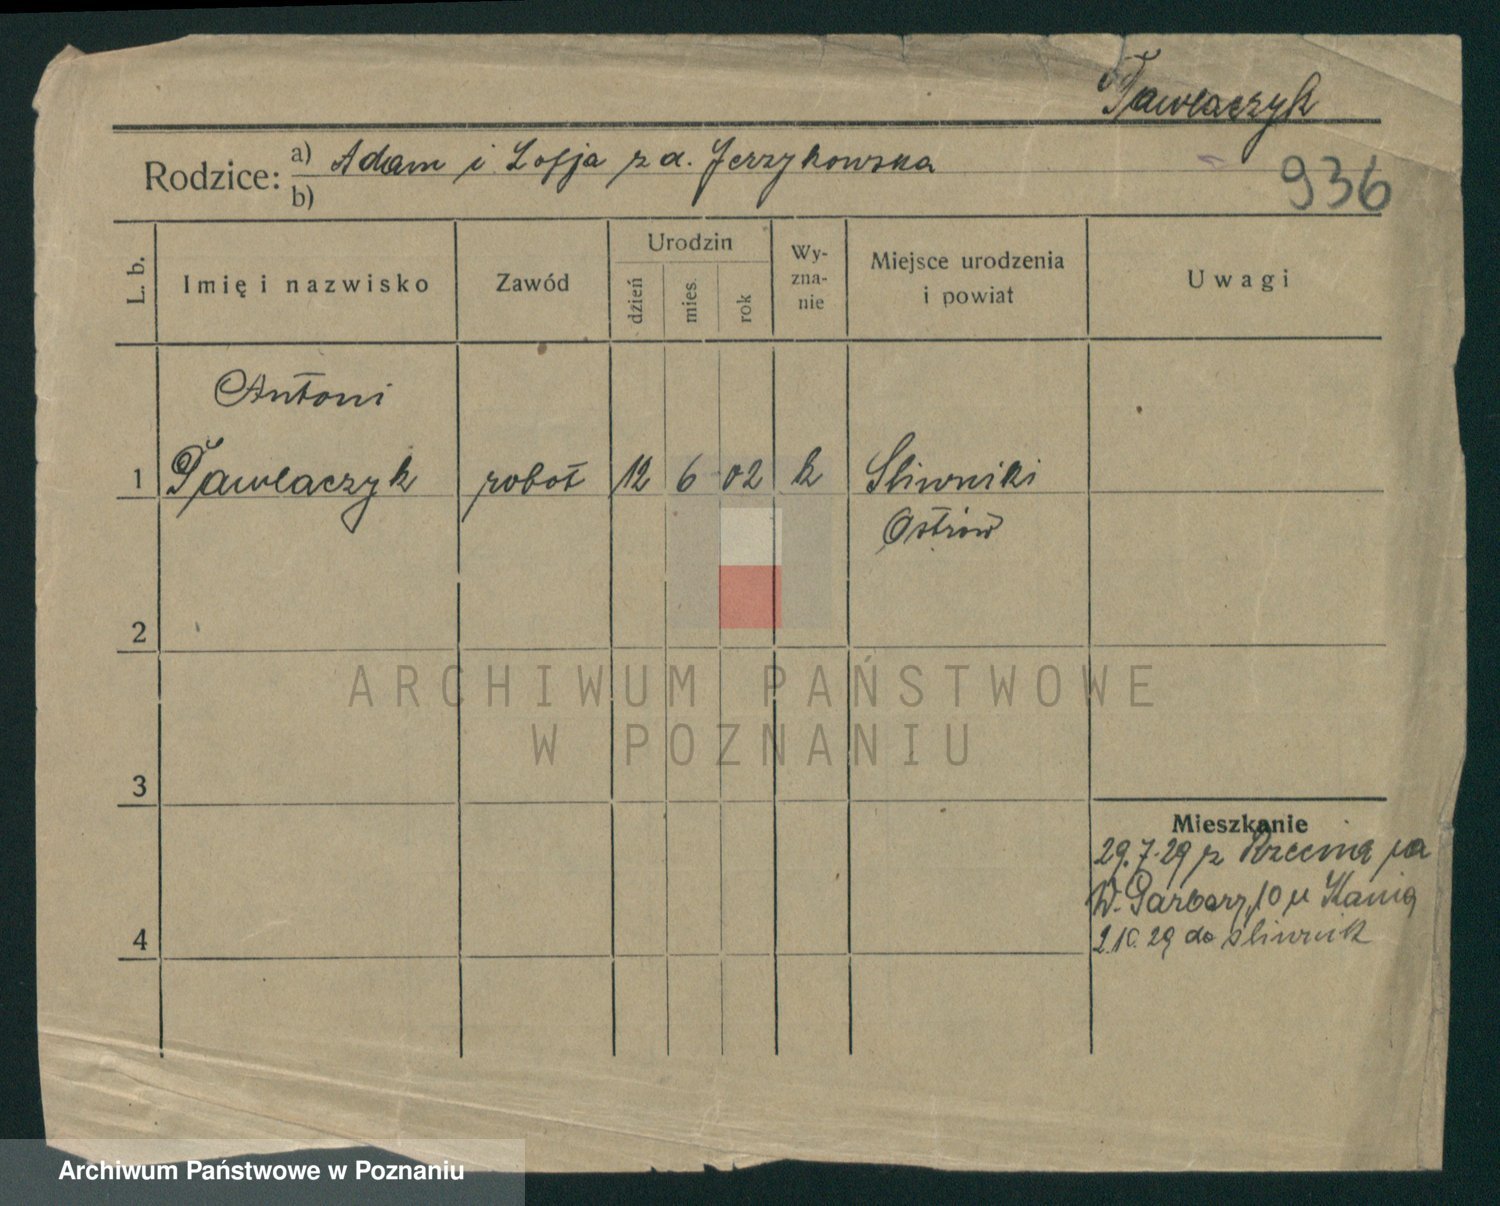 Pawlaczyk
Rodzice: a) Adam i Zofja z d. Jerzykowska
b)
936
L. b.
Imię i nazwisko
Zawód
Urodzin
dzień
mies.
rok
Wy-
zna-
nie
Miejsce urodzenia
i powiat
Uwagi
Antoni
1 Pawlaczyk robot 12 6 02 k Sliwniki
Ostrów
2
3
4
Mieszkanie
29.7.29 z
W. Garbary 10 u Kania
2.10.29 do Sliwnik
ARCHIWUM PAŃSTWOWE
W POZNANIU
Archiwum Państwowe w Poznaniu